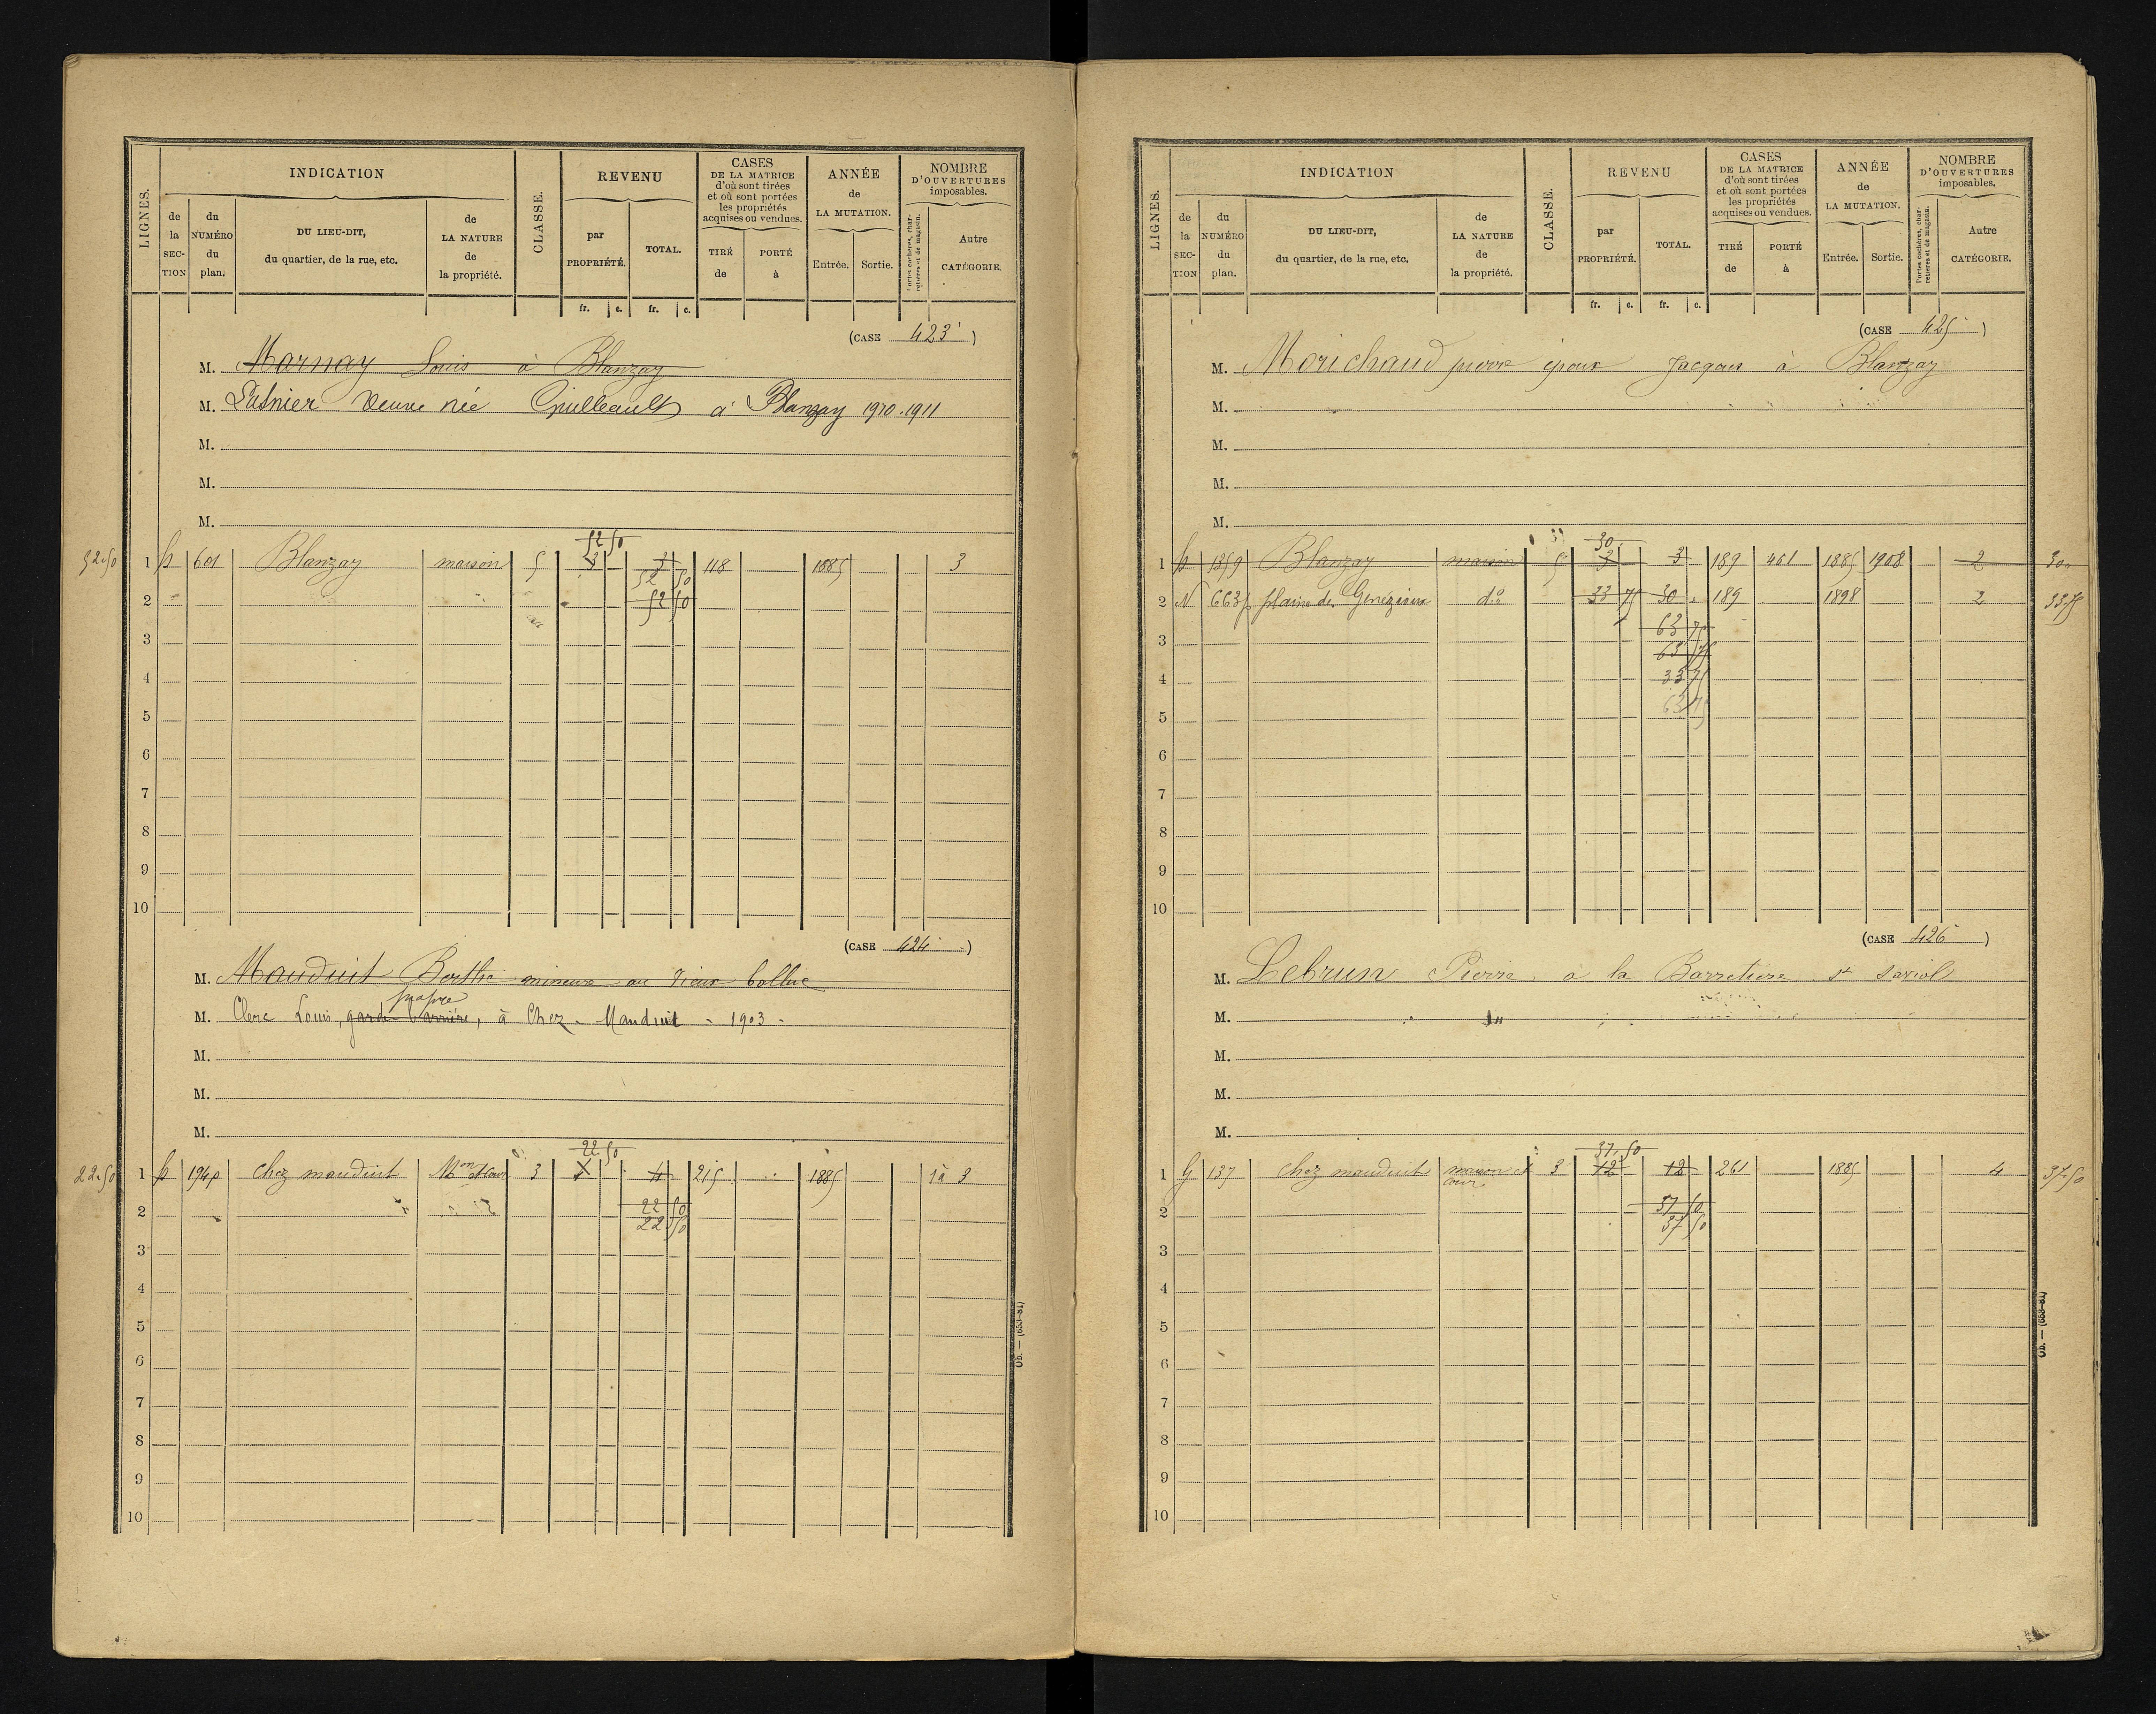 LIGNES.
INDICATION
de la SECTION
du NUMÉRO du plan.
DU LIEU-DIT, du quartier, de la rue, etc.
de LA NATURE de la propriété.
CLASSE.
REVENU
par PROPRIÉTÉ.
TOTAL.
CASES DE LA MATRICE d'où sont tirées et où sont portées les propriétés acquises ou vendues.
TIRÉ de
PORTÉ à
ANNÉE de LA MUTATION.
Entrée.
Sortie.
NOMBRE D'OUVERTURES imposables.
Portes cochères, charretières et de magasin.
Autre CATÉGORIE.
fr. c. fr. c.
(CASE 423)
M. Marnay Louis à Blanzay
M. veuve née Guilleault à Blanzay 1910.1911
M.
M.
M.
52.50
52.50 1 601 Blanzay maison 5 3 3 118 1885 3
52 50
2 52 50
3
4
5
6
7
8
9
10
(CASE 424)
M. Mauduit Berthe mineure au Vieux
propre
M. Clerc Louis, garde barrière, à Chez-Mauduit - 1903 -
M.
M.
M.
22.50
22.50 1 194p chez mauduit Mon et cour 3 4 215 1885 1 à 3
22 50
2 22 50
3
4
5
6
7
8
9
10
Ob. — (653-81)
LIGNES.
INDICATION
de la SECTION
du NUMÉRO du plan.
DU LIEU-DIT, du quartier, de la rue, etc.
de LA NATURE de la propriété.
CLASSE.
REVENU
par PROPRIÉTÉ.
TOTAL.
CASES DE LA MATRICE d'où sont tirées et où sont portées les propriétés acquises ou vendues.
TIRÉ de
PORTÉ à
ANNÉE de LA MUTATION.
Entrée.
Sortie.
NOMBRE D'OUVERTURES imposables.
Portes cochères, charretières et de magasin.
Autre CATÉGORIE.
fr. c. fr. c.
(CASE 425)
M. Morichaud pierre époux Jacques à Blanzay
M.
M.
M.
M.
30
1 1359 Blanzay maison 5 3 3 189 461 1885 1908 2 30
2 N 663p plaine de do 33 75 30 189 1898 2 33.75
63 75
3 63 75
4 33 75
5 63 75
6
7
8
9
10
(CASE 426)
M. Lebrun Pierre à la Barretiere st saviol
M.
M.
M.
M.
37.50
1 G 137 chez mauduit maison et cour 3 12 12 261 1885 4 37.50
2 37 50
37 50
3
4
5
6
7
8
9
10
Ob. — (653-81)